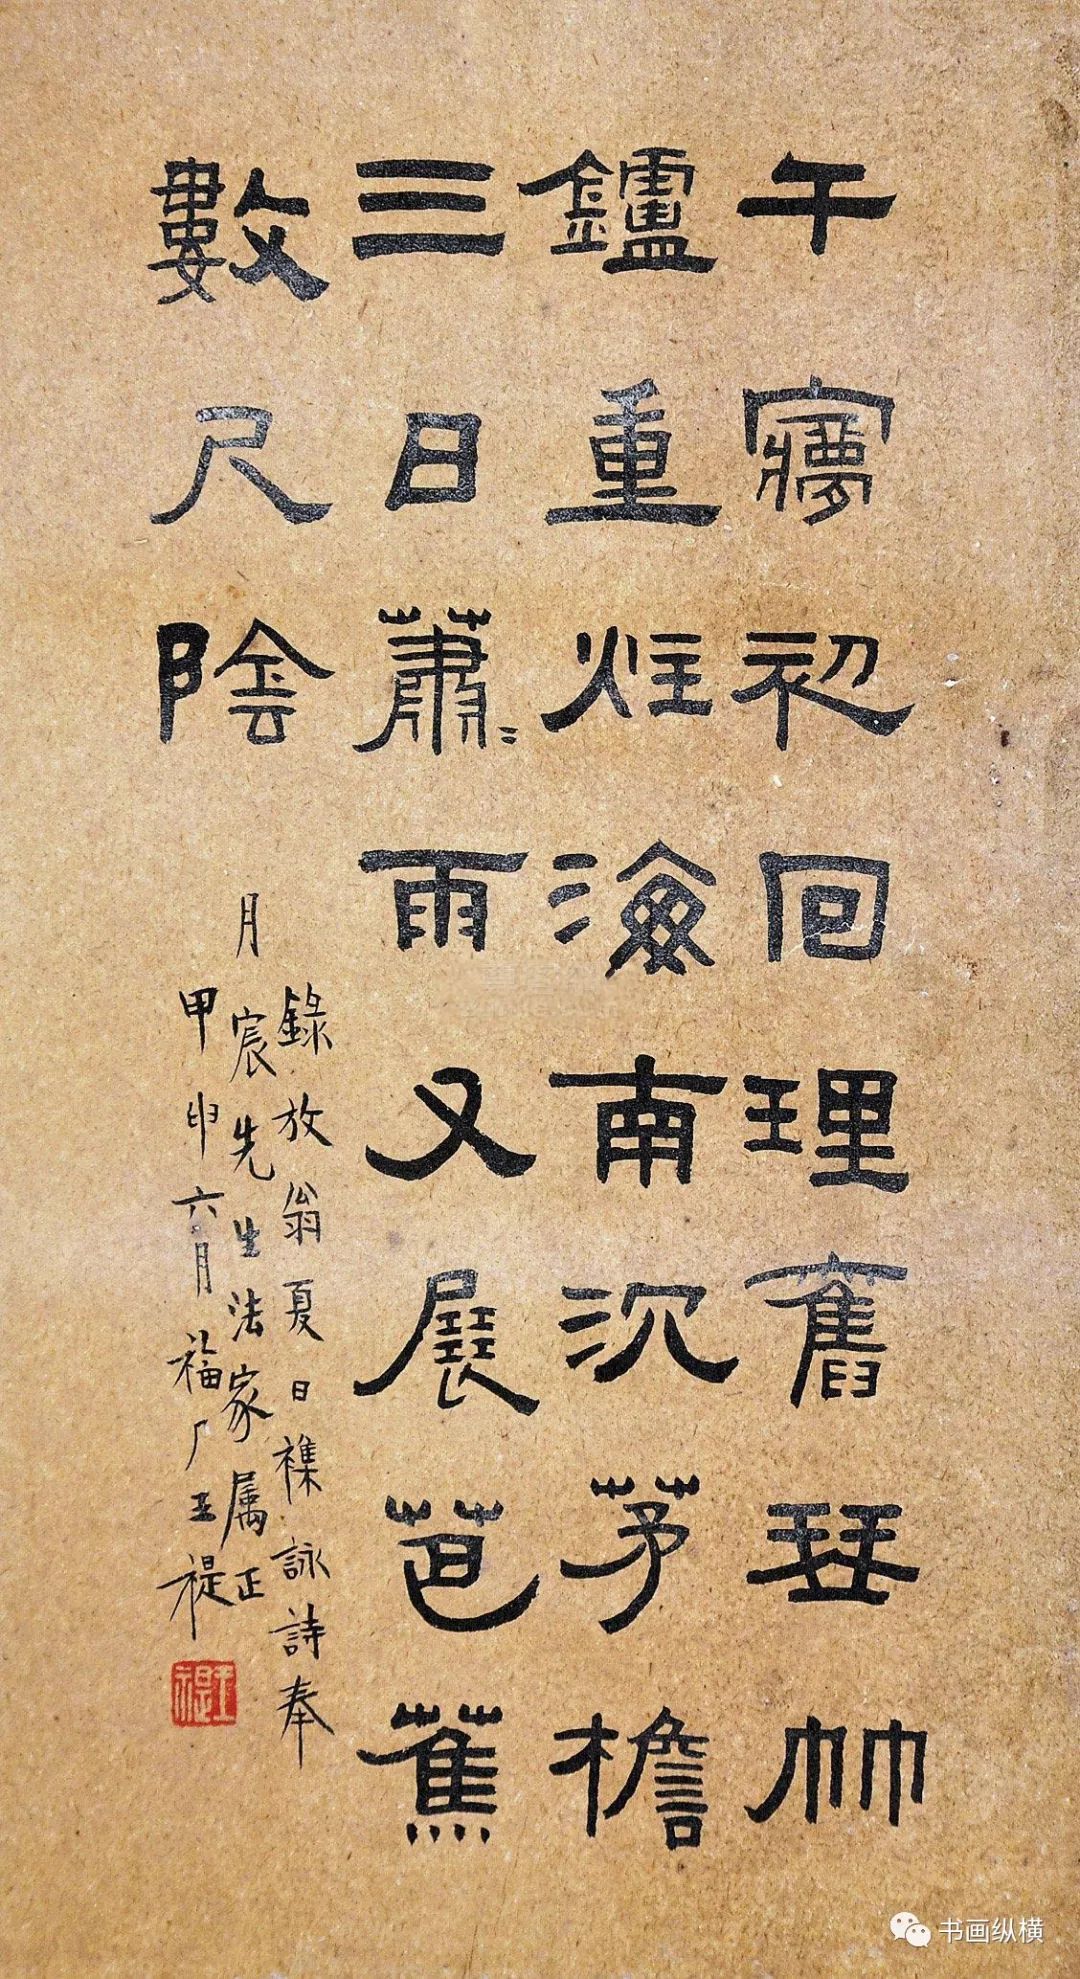 午夢初回理舊琴竹
鑪重炷海南沉茅檐
三日蕭〻雨又展芭蕉
數尺陰
錄放翁夏日襍詠詩奉
月宸先生法家屬正
甲申六月福厂王禔
王禔
书画纵横